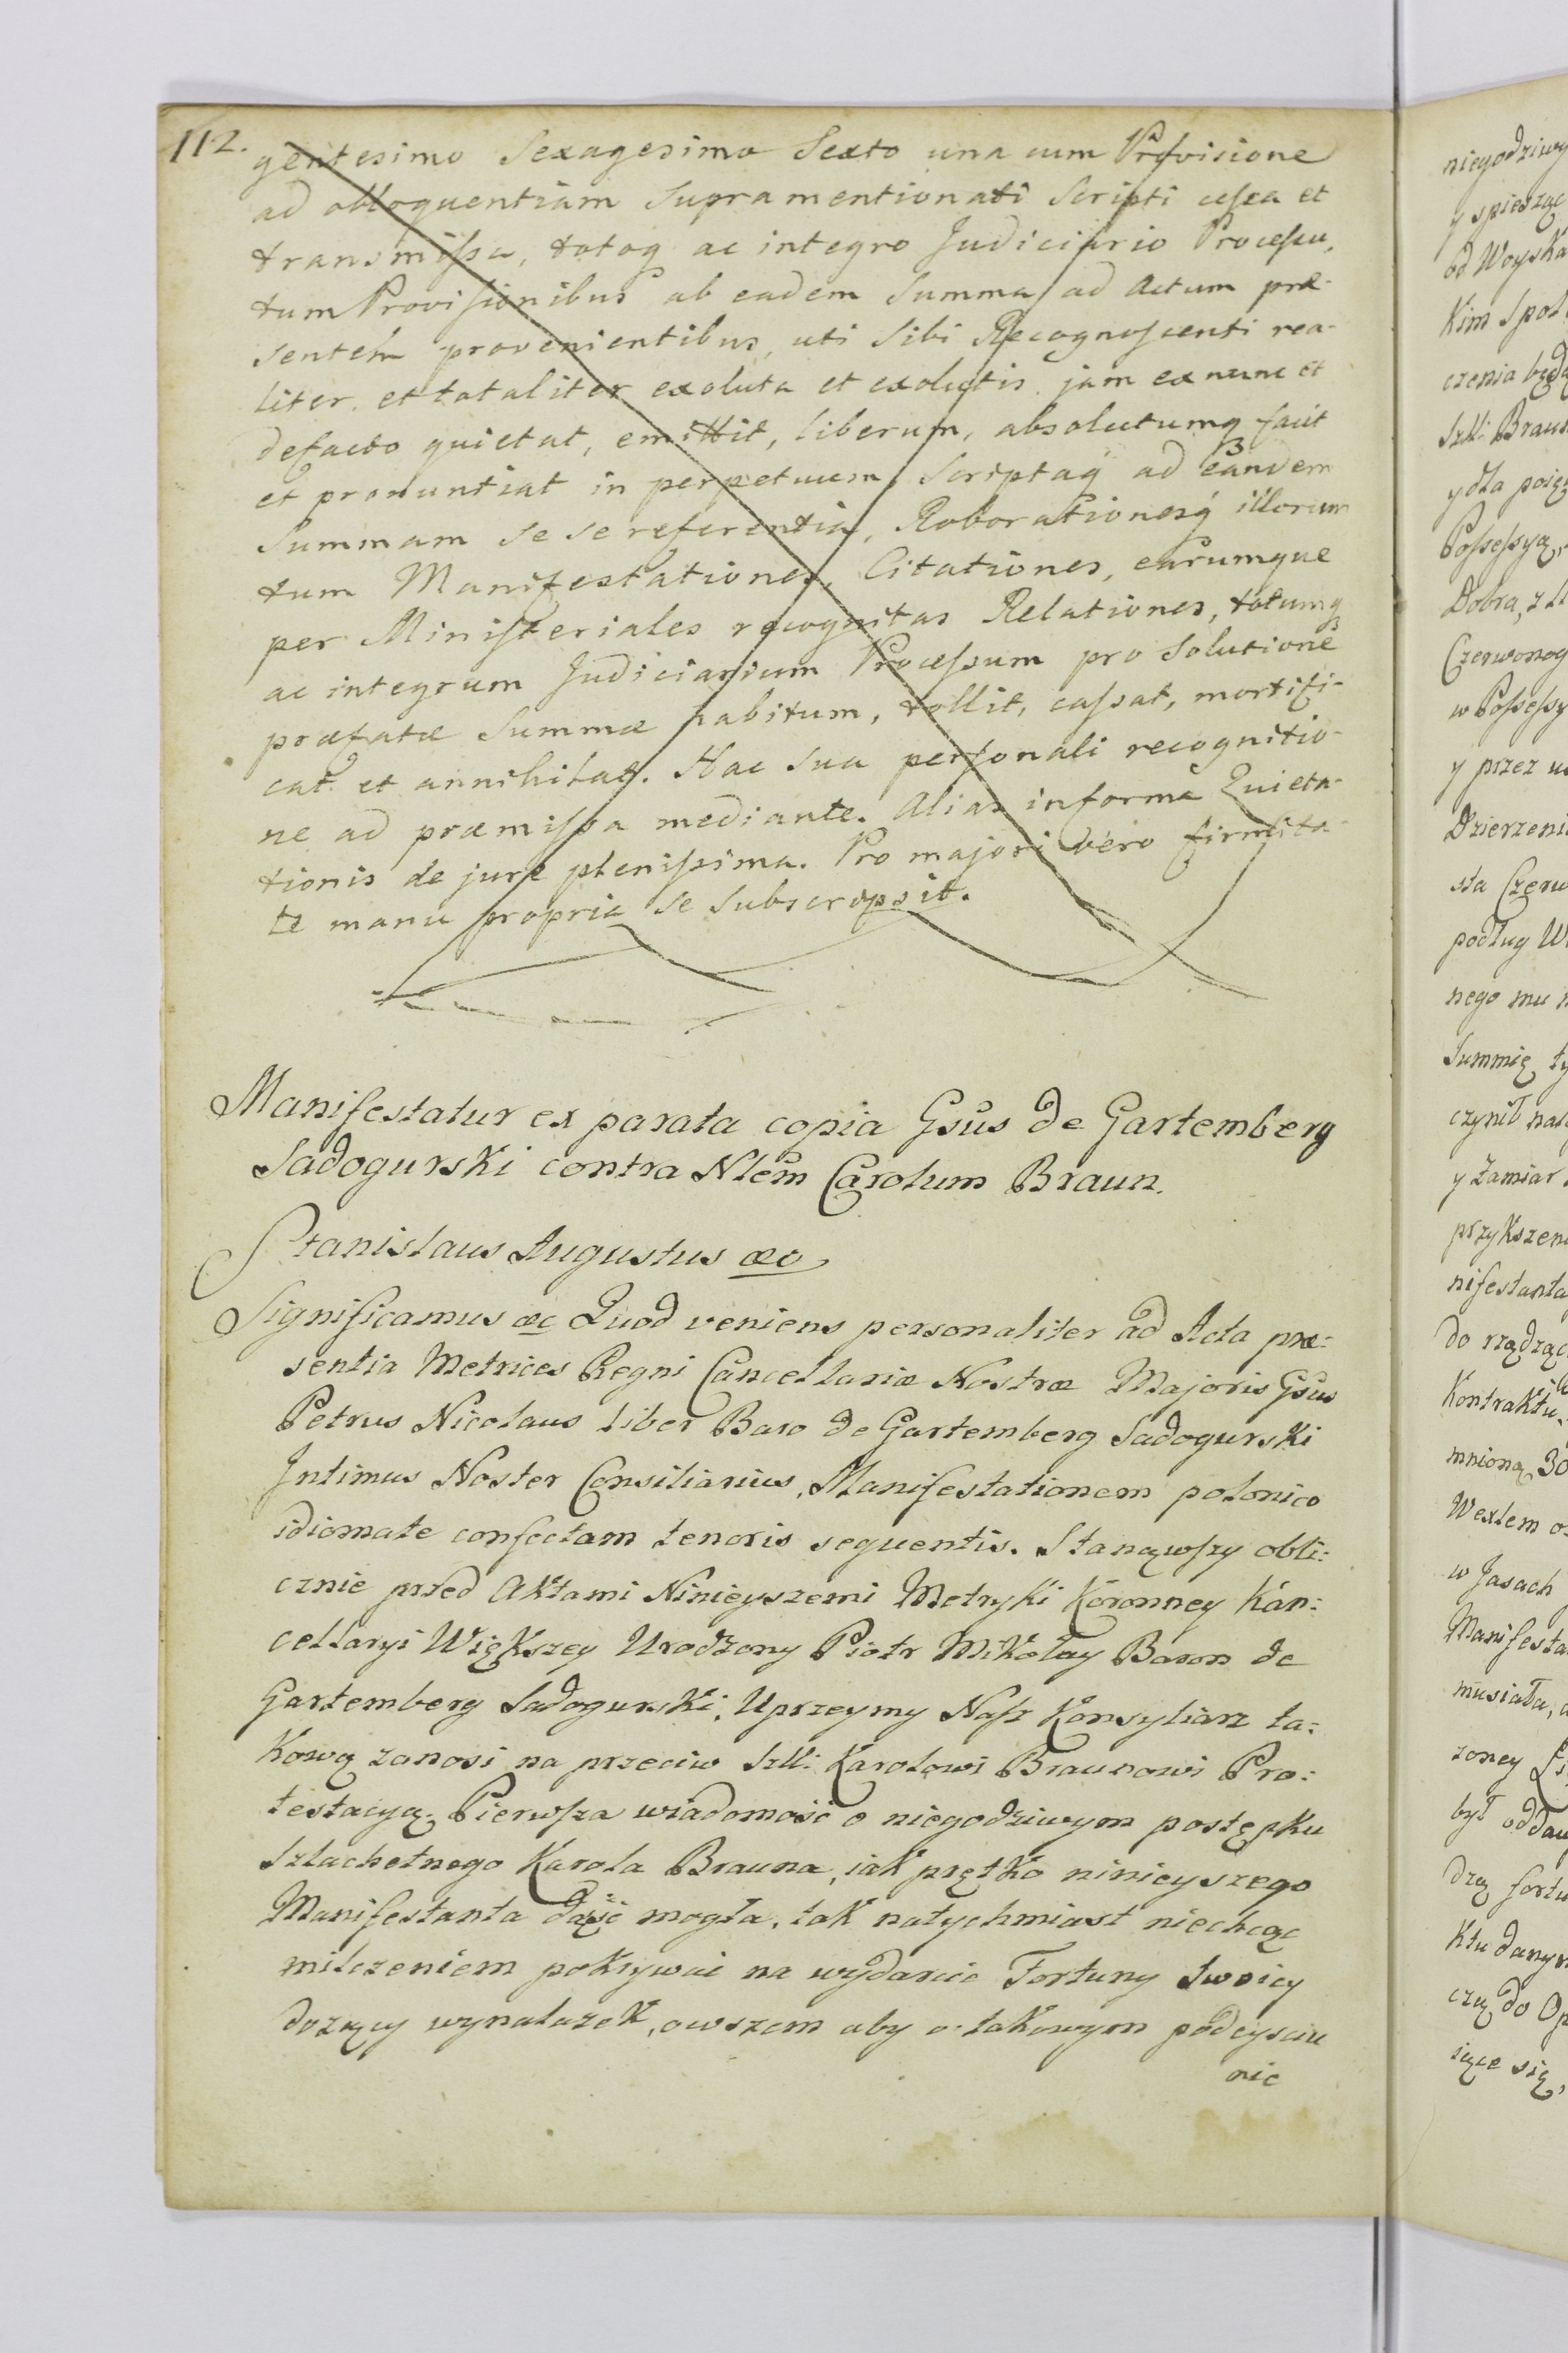 112.
gentesimo Sexagesimo Sexto una cum Provisione
ad obloquentiam Supramentionati Scripti cessa et
transmissa, totoq ac integro Judiciario Processu,
tum Provisionibus ab eadem Summa ad Actum præ-
sentem provenientibus, uti Sibi Recognoscenti rea-
liter et totaliter exoluta et exolutis jam ex nunc et
defacto quietat, emittit, liberum, absolutumq facit
et pronuntiat in perpetuum, Scriptaq ad eandem
Summam se se referentia, Roborationesq illorum
tum Manifestationes, Citationes, earumque
per Ministeriales recognitas Relationes, totumq
ac integrum Judiciarium Processum pro Solutione
præfatæ Summæ habitum, tollit, cassat, mortifi-
cat et annihilat. Hac sua personali recognitio-
ne ad præmissa mediante. Alias informa Quieta-
tionis de jure plenissima. Pro majori vero firmita-
te manu propria se subscripsit.
Manifestatur ex parata copia Gsus de Gartemberg
Sadogurski contra Nlem Carolum Braun.
Stanislaus Augustus æc
Significamus æc Quod veniens personaliter ad Acta præ:
sentia Metrices Regni Cancellariæ Nostræ Majoris Gsus
Petrus Nicolaus liber Baro de Gartemberg Sadogurski
Intimus Noster Consiliarius, Manifestationem polonico
idiomate confectam tenoris sequentis. Stanąwszy obli:
cznie przed Aktami Ninieyszemi Metryki Koronney Kan:
cellaryi Większey Urodzony Piotr Mikołay Baron de
Gartemberg Sadogurski, Uprzeymy Nasz Konsyliarz ta:
kową zanosi na przeciw Szll: Karolowi Braunowi Pro:
testacyą. Pierwsza wiadomość o niegodziwym postępku
Szlachetnego Karola Brauna, iak prętko ninieyszego
Manifestanta dąść mogła, tak natychmiast niechcąc
milczeniem pokrywać na wydarcie Fortuny Swoiey
dozący wynalazek, owszem aby o takowym podeysciu
nic
niegodziwy
y spiesząc
od Woyska
Kim Spol
czenia będą
Szll: Braun
y dla posię
Possessyą,
Dobra, z
Czerwonog
w Possessy
y przez
Dzierzeni
sta Czerw
podług W
nego mu
Summię ty
czynił nal
y Zamiar
przykszeni
nifestanta
do rządząc
Kontraktu
mnioną 30
Wexlem o
w Jasach
Manifesta
musiała,
zoney
był oddan
dzą fortu
Ktu danym
czą do Op
iące się,